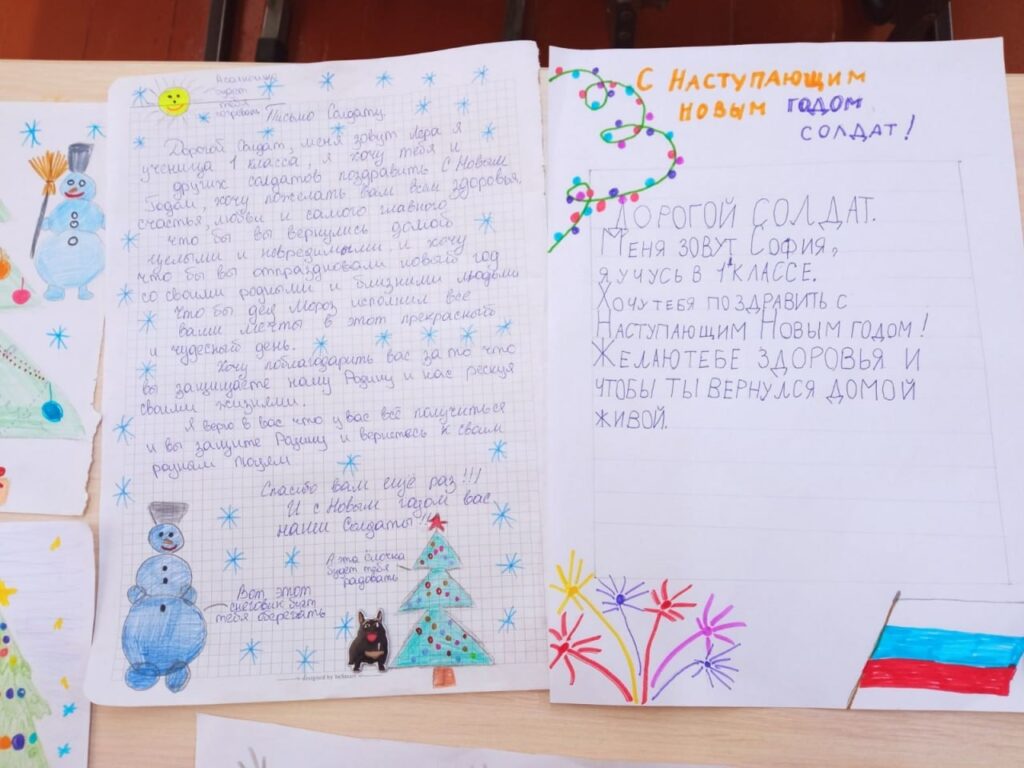 Солнышко
будет
тебя
согревать
Письмо Солдату.
Дорогой Солдат, меня зовут Лера я
ученица 1 класса, я хочу тебя и
других солдатов поздравить С Новым
Годом, хочу пожелать вам всем здоровья,
счастья, любви и самого главного
что бы вы вернулись домой
целыми и невредимыми и хочу
что бы вы отпраздновали новый год
со своими родными и близкими людьми
Что бы дед Мороз исполнил все
ваши мечты в этот прекрасный
и чудесный день.
Хочу поблагодарить вас за то что
вы защищаете нашу Родину и нас рескуя
своими жизнями.
Я верю в вас что у вас всё получиться
и вы защите Родину и вернетесь к своим
родным
Спасибо вам ещё раз!!!
И с Новым годом вас
наши Солдаты!!!
А эта ёлочка
будет тебя
радовать
Вот этот
снеговик будет
тебя оберегать
designed by
С НАСТУПАЮЩИМ
НОВЫМ ГОДОМ
СОЛДАТ!
ДОРОГОЙ СОЛДАТ.
МЕНЯ ЗОВУТ СОФИЯ,
Я УЧУСЬ В 1 КЛАССЕ.
ХОЧУ ТЕБЯ ПОЗДРАВИТЬ С
НАСТУПАЮЩИМ НОВЫМ ГОДОМ!
ЖЕЛАЮ ТЕБЕ ЗДОРОВЬЯ И
ЧТОБЫ ТЫ ВЕРНУЛСЯ ДОМОЙ
ЖИВОЙ.